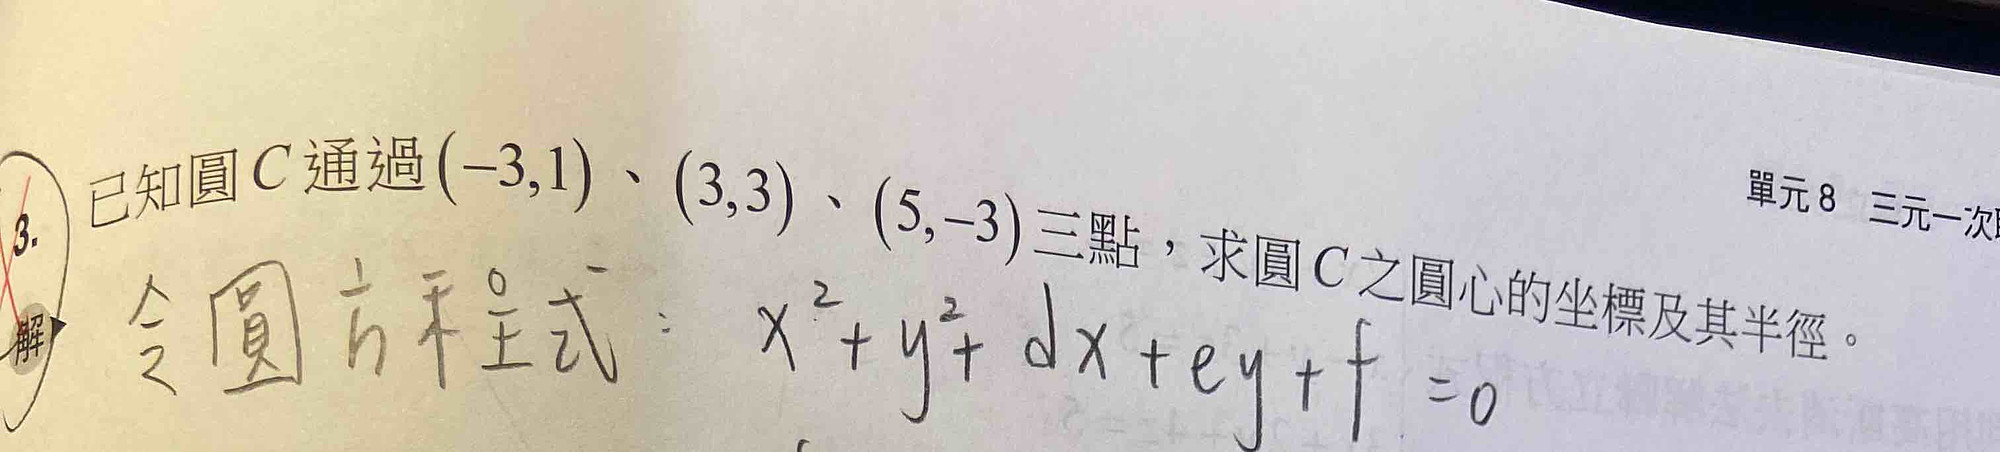 單元8 三元一次
3. 已知圓C通過(-3,1)、(3,3)、(5,-3)三點，求圓C之圓心的坐標及其半徑。
解 令圓方程式：x²+y²+dx+ey+f=0